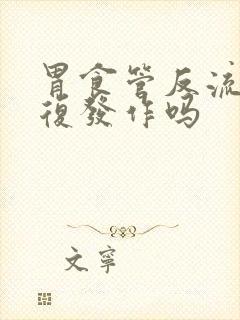 胃食管反流
復發作吗
文寧